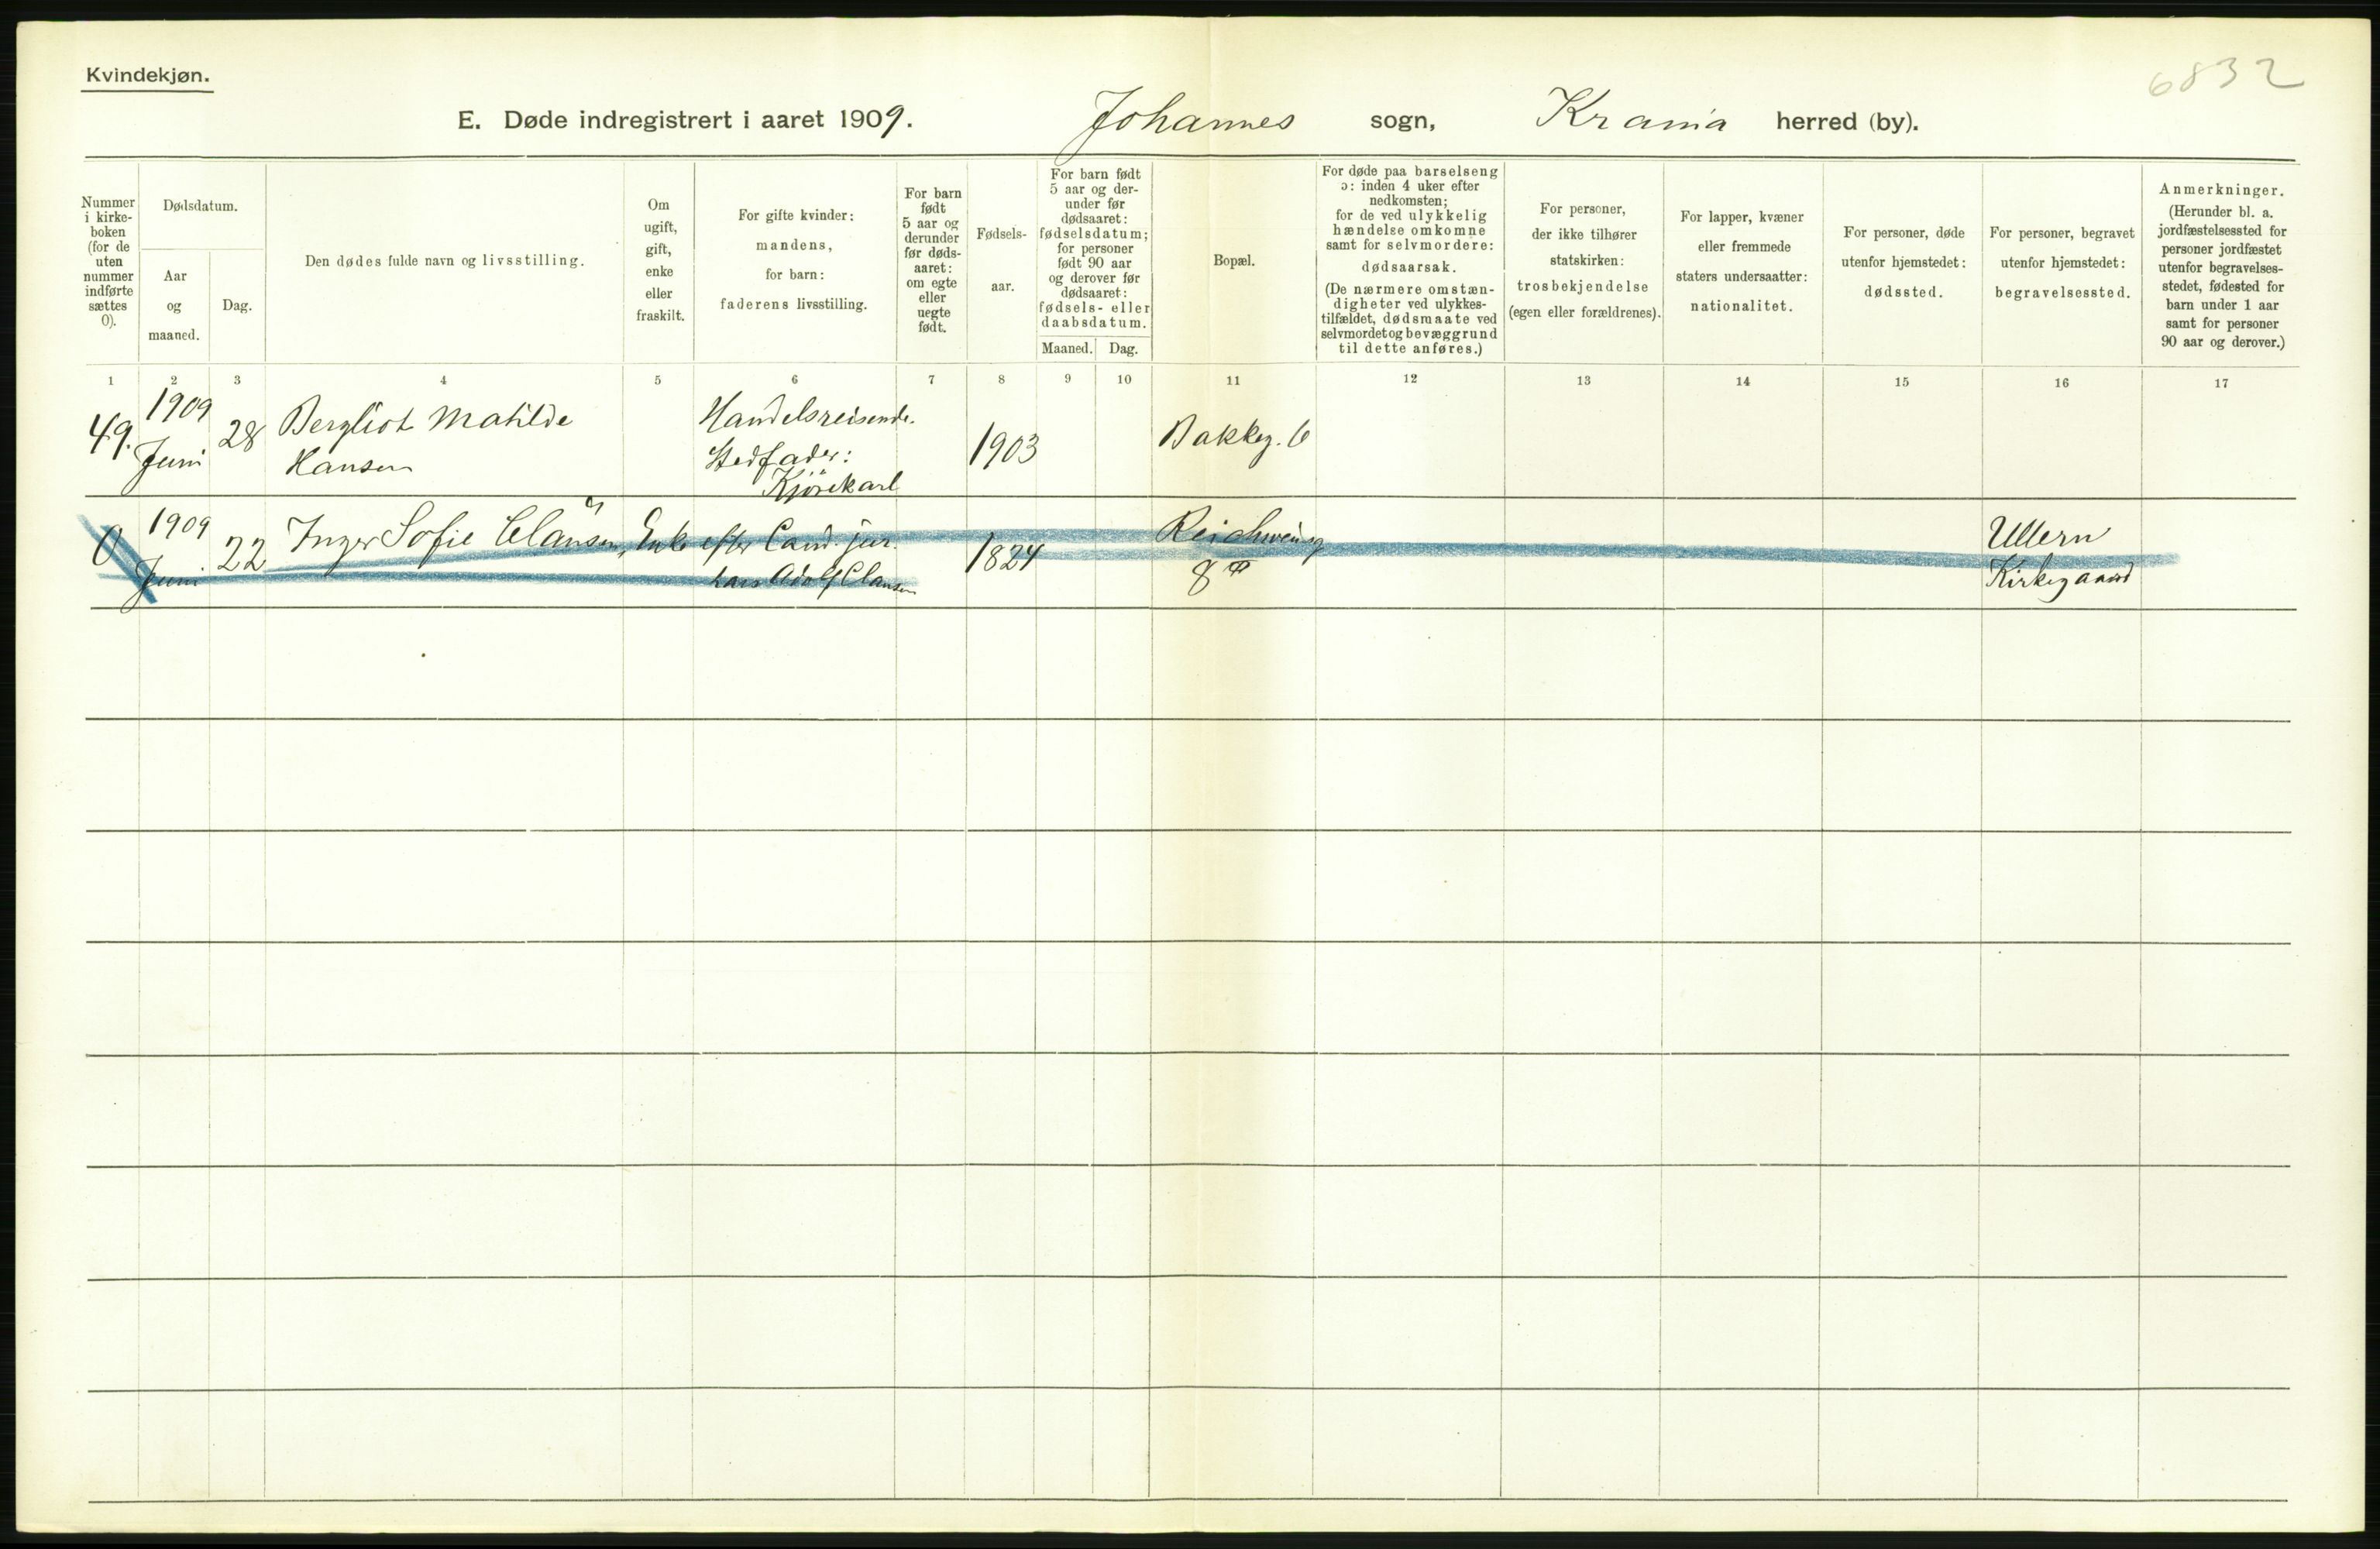 Kvindekjøn.
6832
E. Døde indregistrert i aaret 1909. Johannes sogn, Krania herred (by).
Nummer i kirke-boken (for de uten nummer indførte sættes 0).
Dødsdatum.
Aar og maaned.
Dag.
Den dødes fulde navn og livsstilling.
Om ugift, gift, enke eller fraskilt.
For gifte kvinder: mandens, for barn: faderens livsstilling.
For barn født 5 aar og derunder før døds-aaret: om egte eller uegte født.
Fødsels-aar.
For barn født 5 aar og der-under før dødsaaret: fødselsdatum; for personer født 90 aar og derover før dødsaaret: fødsels- eller daabsdatum.
Maaned. Dag.
Bopæl.
For døde paa barselseng ɔ: inden 4 uker efter nedkomsten; for de ved ulykkelig hændelse omkomne samt for selvmordere: dødsaarsak. (De nærmere omstæn-digheter ved ulykkes-tilfældet, dødsmaate ved selvmordet og bevæggrund til dette anføres.)
For personer, der ikke tilhører statskirken: trosbekjendelse (egen eller forældrenes).
For lapper, kvæner eller fremmede staters undersaatter: nationalitet.
For personer, døde utenfor hjemstedet: dødssted.
For personer, begravet utenfor hjemstedet: begravelsessted.
Anmerkninger. (Herunder bl. a. jordfæstelsessted for personer jordfæstet utenfor begravelses-stedet, fødested for barn under 1 aar samt for personer 90 aar og derover.)
1 2 3 4 5 6 7 8 9 10 11 12 13 14 15 16 17
49. 1909 Juni 28 Bergliot Matilde Hansen Handelsreisende. Stedfader: Kjörekarl 1903 Bakkeg. 6
0 1909 Juni 22 Inger Sofie Clausen, Enke efter Cand. jur. Lars Adolf Clausen 1824 Reichweinsg 8 Ullern Kirkegaard